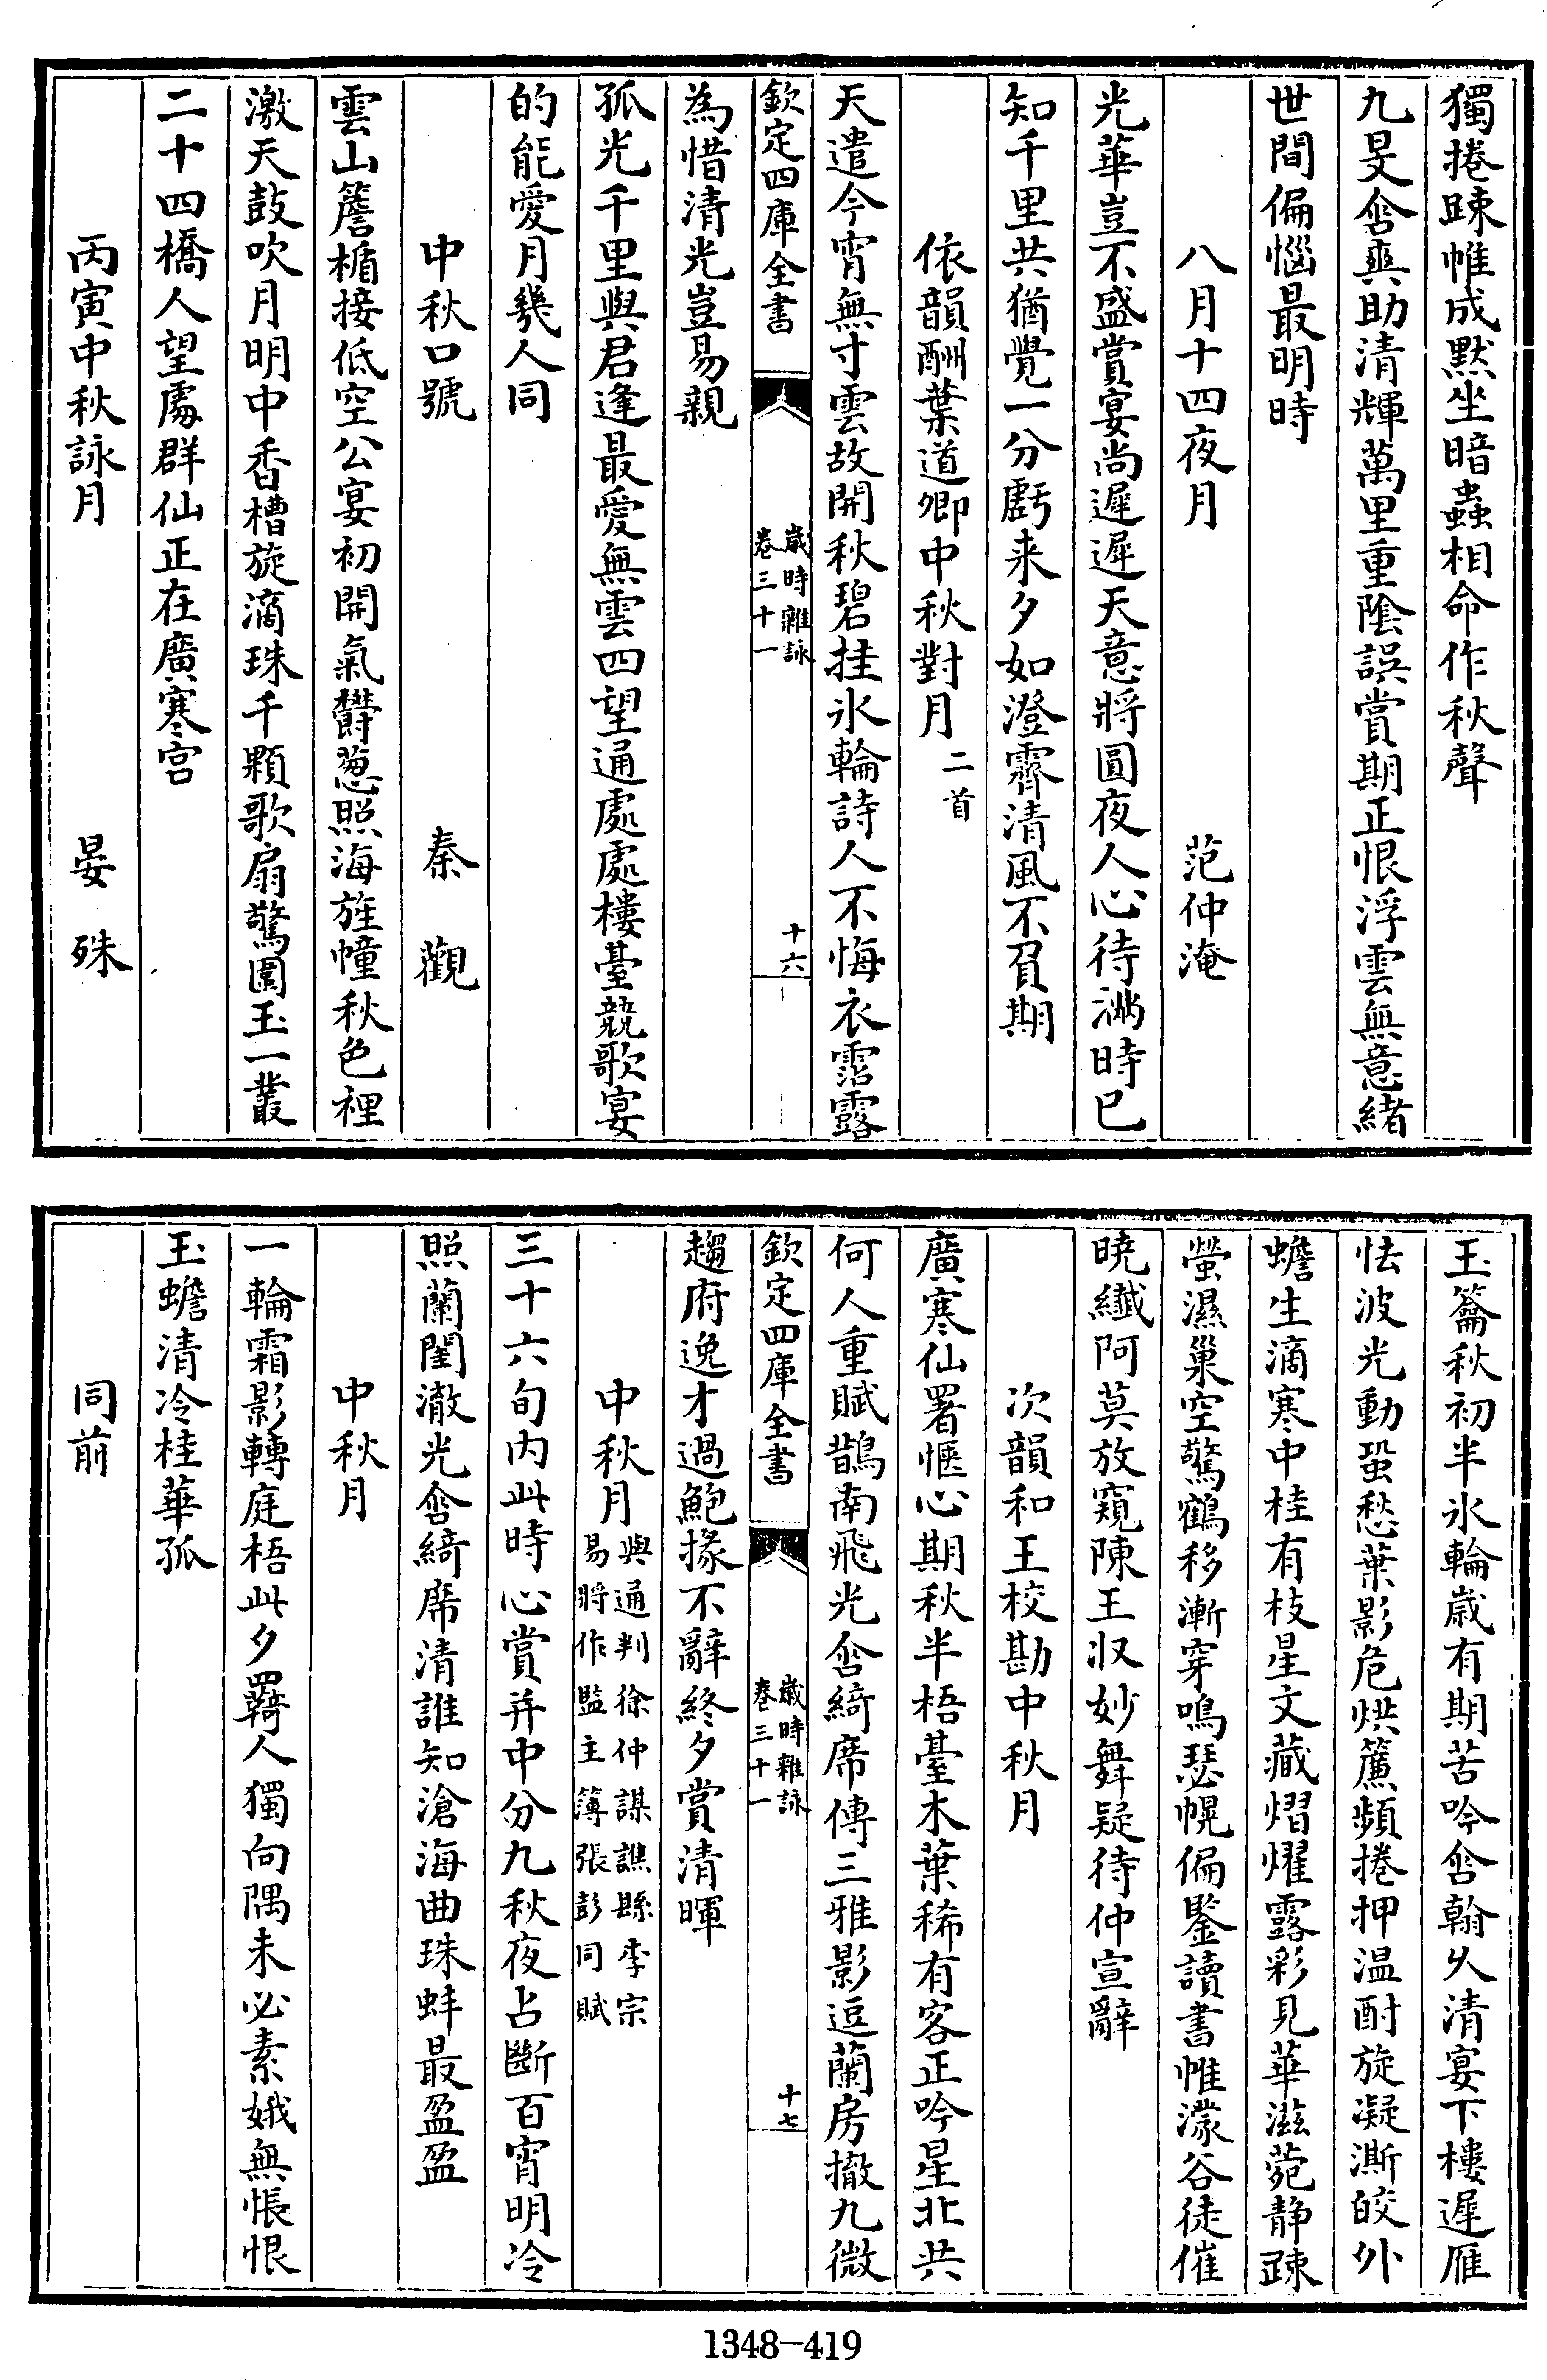 獨捲疎帷成默坐暗蟲相命作秋聲
九旻含爽助清輝萬里重陰誤賞期正恨浮雲無意緒
世間偏惱最明時
八月十四夜月 范仲淹
光華豈不盛賞宴尚遲遲天意將圓夜人心待滿時已
知千里共猶覺一分虧来夕如澄霽清風不負期
依韻酬葉道卿中秋對月二首
天遣今宵無寸雲故開秋碧挂氷輪詩人不悔衣霑露
欽定四庫全書 歲時雜詠 卷三十一 十六
為惜清光豈易親
孤光千里與君逢最愛無雲四望通處處樓臺競歌宴
的能愛月幾人同
中秋口號 秦觀
雲山簷楯接低空公宴初開氣鬱葱照海旌幢秋色裡
激天鼓吹月明中香槽旋滴珠千顆歌扇驚圍玉一叢
二十四橋人望處群仙正在廣寒宫
丙寅中秋詠月 晏殊
玉籥秋初半氷輪歲有期苦吟含翰久清宴下樓遲雁
怯波光動蛩愁葉影危烘簾頻捲押温酎旋凝澌皎外
蟾生滴寒中桂有枝星文藏熠燿露彩見華滋菀静疎
螢濕巢空驚鶴移漸穿鳴瑟幌偏鑒讀書帷濛谷徒催
曉纖阿莫放窺陳王収妙舞疑待仲宣辭
次韻和王校勘中秋月
廣寒仙署愜心期秋半梧臺木葉稀有客正吟星北共
何人重賦鵲南飛光含綺席傳三雅影逗蘭房撤九微
欽定四庫全書 歲時雜詠 卷三十一 十七
趨府逸才過鮑掾不辭終夕賞清暉
中秋月與通判徐仲謀譙縣李宗易將作監主簿張彭同賦
三十六旬内此時心賞并中分九秋夜占斷百宵明冷
照蘭閨澈光含綺席清誰知滄海曲珠蚌最盈盈
中秋月
一輪霜影轉庭梧此夕羇人獨向隅未必素娥無悵恨
玉蟾清冷桂華孤
同前
1348-419